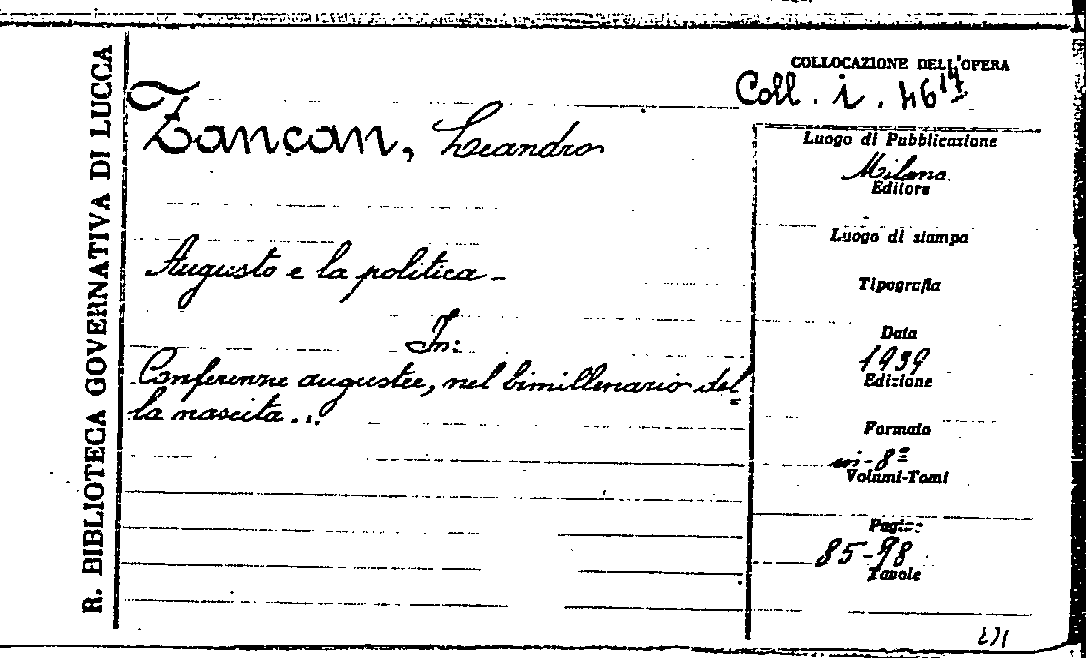 R. BIBLIOTECA GOVERNATIVA DI LUCCA
COLLOCAZIONE DELL'OPERA
Coll. i. 46 17
Zancan, Leandro
Augusto e la politica -
In:
Conferenze augustee, nel bimillenario del
la nascita...
Luogo di Pubblicazione
Milano
Editore
Luogo di stampa
Tipografia
Data
1939
Edizione
Formato
in-8º
Volumi-Tomi
Pagine
85-98
Tavole